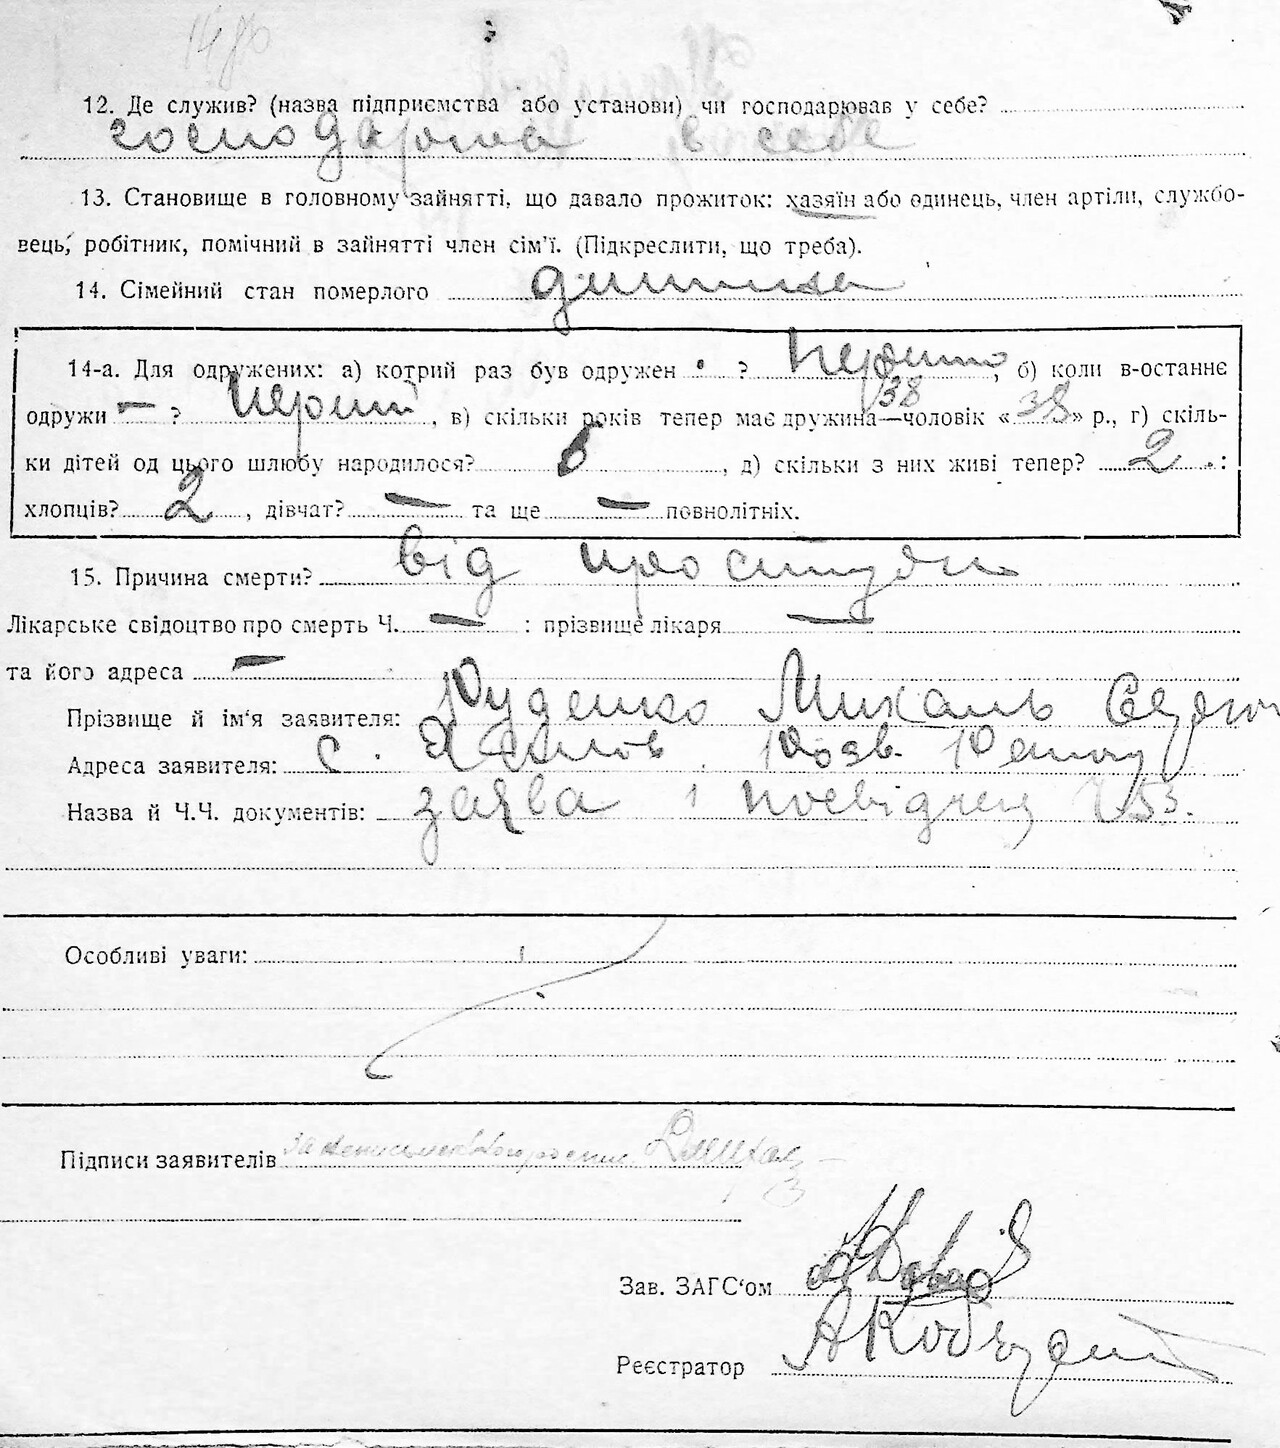 12. Де служив? (назва підприємства або установи) чи господарював у себе?
господарила в себе
13. Становище в головному зайнятті, що давало прожиток: хазяїн або одинець, член артіли, службо-
вець, робітник, помічний в зайнятті член сім'ї. (Підкреслити, що треба).
14. Сімейний стан померлого дитина
14-а. Для одружених: а) котрий раз був одружен ?, б) коли в-останнє
38
одружи — ? перший, в) скільки років тепер має дружина—чоловік «38» р., г) скіль-
ки дітей од цього шлюбу народилося?, д) скільки з них живі тепер? 2 :
хлопців? 2, дівчат? — та ще — повнолітніх.
15. Причина смерти? від простуди
Лікарське свідоцтво про смерть Ч. — : прізвище лікаря —
та його адреса —
Прізвище й ім'я заявителя: Руденко Михаль
Адреса заявителя: с.
Назва й Ч.Ч. документів: заява і 53.
Особливі уваги:
Підписи заявителів
Зав. ЗАГС'ом
Реєстратор